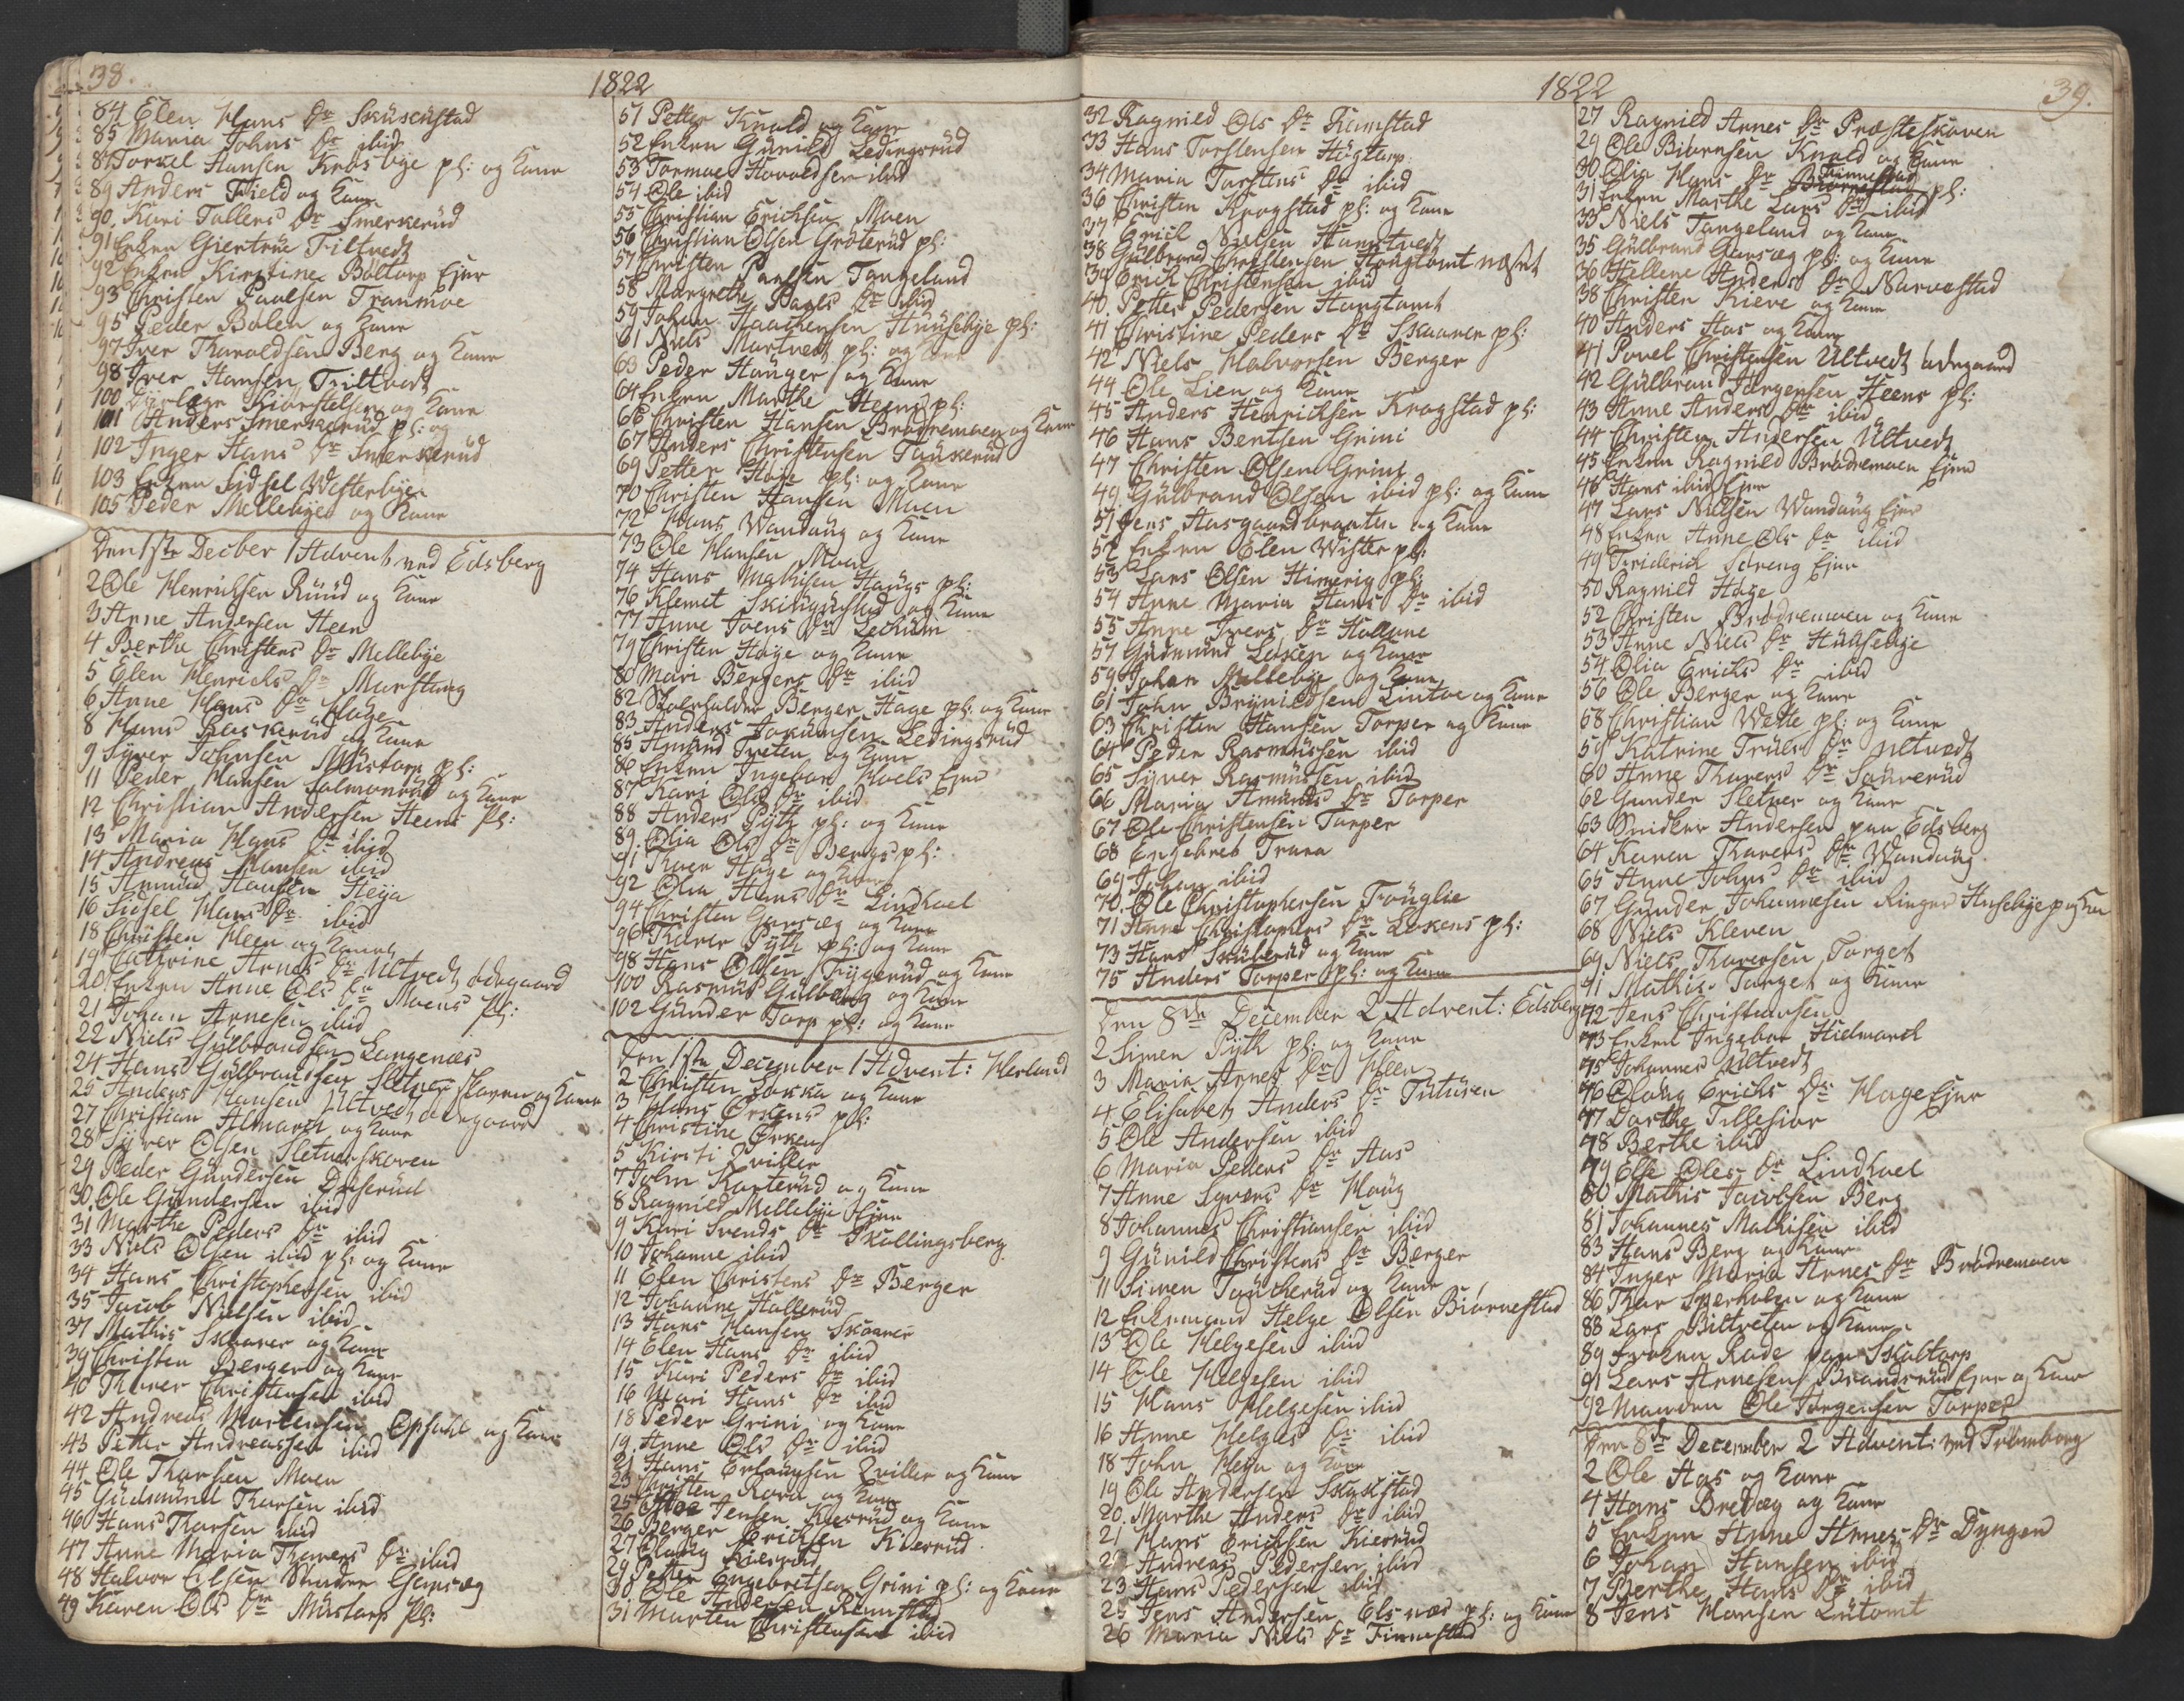 38.
1822
84 Elen Hans Dr Sküsestad
85 Maria Johns Dr ibid
87 Torkel Hansen Krosbye pl: og Kone
89 Anders Field og Kone
90. Kari Tollers Dr Smerkerüd
91 Enken Giertrue Tiltvedt
92 Enken Kirstine Böttorp Ejer
93 Christen Paulsen Tranmoe
95 Peder Bolen og Kone
97 Iver Tharaldsen Berg og Kone
98 Iver Hansen Tiltvedt
100 og Kone
101 Anders Smerkerüd pl: og
102 Inger Hans Dr Smerkerüd
103 Enken Sidsel Westerbye
105 Peder Mellebye og Kone
Den 1ste Decber 1 Advent ved Edsberg
2 Ole Henrichsen Rüüd og Kone
3 Anne Andersen Heen
4 Berthe Christens Dr Mellebye
5 Elen Henrichs Dr
6 Anne Hans Dr Hage
8 Hans og Kone
9 Syver Johnsen Müstorp pl:
11 Peder Hansen Salmonrüd og Kone
12 Christian Andersen Heens pl:
13 Maria Hans Dr ibid
14 Andreas Hansen ibid
15 Amund Hansen Heya
16 Sidsel Hans Dr ibid
18 Christen Heen og Kone
19 Cathrine Arnes Dr Ultvedt ødegaard
20 Enken Anne Ols Dr Moens pl:
21 Johan Arnesen ibid
22 Niels Gülbrandsen Langenæs
24 Hans Gülbrandsen Sletner skoven og Kone
25 Anders Hansen Ultvedt ødegaard
27 Christian Almarch og Kone
28 Syver Olsen Sletnerskoven
29 Peder Gundersen
30. Ole Gundersen ibid
31 Marthe Peders Dr ibid
33 Niels Olsen ibid pl: og Kone
34 Hans Christophersen ibid
35 Jacob Nielsen ibid
37 Mathis Skaarer og Kone
39 Christen Berger og Kone
40 Thorer Christensen ibid
42 Andreas Mortensen Opsahl og Kone
43 Petter Andreassen ibid
44 Ole Thorsen Moen
45 Gudmünd Thorsen ibid
46 Hans Thorsen ibid
47 Anne Maria Thorers Dr ibid
48 Halvor Olsen
49 Karen Ols Dr Müstorp pl:
51 Petter Knold og Kone
52 Enken Günild Ledingsrüd
53 Tormoe ibid
54 Ole ibid
55 Christian Erichsen Moen
56 Christian Olsen Gröterüd pl:
57 Christen Paulsen Tangeland
58 Margrethe Povels Dr ibid
59 Johan Haachensen Hüüsebye pl:
61 Niels Martvedt pl: og Kone
63 Peder Hanger og Kone
64 Enken Marthe Heens pl:
66 Christen Hansen Brødremoen og Kone
67 Anders Christensen Taükerüd
69 Petter Hage pl: og Kone
70 Christen Hansen Moen
72 Hans Wandüng og Kone
73 Ole Hansen Moen
74 Hans Mathisen Haügs pl:
76 Klemet og Kone
77 Anne Joens Dr Lechum
79 Christen Hage og Kone
80 Mari Bergers Dr ibid
82 Skoleholder Berger Hage pl: og Kone
83 Anders Ledingsrüd
85 Amund Treten og Kone
86 Enken Ingebor Hoels Ejer
87 Kari Ols Dr ibid
88 Anders Pyth pl: og Kone
89. Olia Ols Dr Bergs pl:
91 Thore Hage og Kone
92 Olia Hans Dr Lindhoel
94 Christen Garseg og Kone
96 Thorer Pyth pl: og Kone
98 Hans Olsen Frygerüd og Kone
100 Rasmus Gülberg og Kone
102 Günder Torp pl: og Kone
Den 1ste December 1 Advent: Herland
2 Christen Lokka og Kone
3 Hans Ørkens pl:
4 Christine Ørkens
5 Kirsti Zviller
7 John Karterüd og Kone
8 Ragnild Mellebye Ejer
9 Kari Svends Dr Skullingsberg
10 Johanne ibid
11 Elen Christens Dr Berger
12 Johanne Hallerüd
13 Hans Hansen Skaarer
14 Elen Hans Dr ibid
15 Kari Peders Dr ibid
16 Mari Hans Dr ibid
18 Peder Grini og Kone
19 Anne Ols Dr ibid
21 Hans Erlaugsen Zviller og Kone
23 Christen og Kone
25 Jensen Kierrüd og Kone
26 Berger Erichsen Kierrüd
27 Olaug Kierrüd
29 Petter Engebretsen Grini pl: og Kone
30 Ole Andersen Ramstad
31 Morten Christensen ibid
1822
39.
32 Ragnild Ols Dr Ramstad
33 Hans Torstensen Høgtorp
34 Maria Torstens Dr ibid
36 Christen Krogstad pl: og Kone
37 Erich Nielsen Hamtvedt
38 Gülbrand Christensen Hougtomt næset
39 Erich Christensen ibid
40. Petter Pedersen Hangtomt
41 Christine Peders Dr Skaarer pl:
42 Niels Halvorsen Berger
44 Ole Lien og Kone
45 Anders Henrichsen Krogstad pl:
46 Hans Bentsen Grini
47 Christen Olsen Grini
49 Gülbrand Olsen ibid pl: og Kone
51 Jens Aasgaardbraaten og Kone
52 Enken Elen Wister pl:
53 Lars Olsen Himerig pl:
54 Anne Maria Hans Dr ibid
55 Anne Ivers Dr Hollene
57 Gudmund Løken og Kone
59 Johan Mellebye og Kone
61 John Brynildsen Lintoe og Kone
63 Christen Hansen Torper og Kone
64 Peder Rasmüssen ibid
65 Syver Rasmüssen ibid
66 Maria Amunds Dr Torper
67 Ole Christensen Torper
68 Engebret Trara
69 Johan ibid
70. Ole Christophersen Fröüglie
71 Anne Christophers Dr Løkens pl:
73 Hans Skuberüd og Kone
75 Anders Torper pl: og Kone
Den 8de December 2 Advent: Edsberg
2 Simen Pyth pl: og Kone
3 Maria Arnes Dr Heen
4 Elisabeth Anders Dr Tutüren
5 Ole Andersen ibid
6 Maria Peders Dr Aas
7 Anne Syvers Dr Haüg
8 Johannes Christiansen ibid
9 Günild Christens Dr Berger
11 Simen Taücherüd og Kone
12 Enkemand Helge Olsen Biørnestad
13 Ole Helgesen ibid
14 Ole Helgesen ibid
15 Hans Helgesen ibid
16 Anne Helges Dr ibid
18 John Heja og Kone
19 Ole Andersen Skükstad
20. Marthe Anders Dr ibid
21 Hans Erichsen Kierrüd
22 Andreas Pedersen ibid
23 Hans Pedersen ibid
25 Jens Andersen Elsnæs pl: og Kone
26 Maria Niels Dr Finnestad
27 Ragnild Arnes Dr Præsteskoven
29 Ole Biørnsen Knold og Kone
30 Olia Hans Dr Finnestad
31 Enken Marthe Lars Dr ibid pl:
33 Niels Tangeland og Kone
35 Gülbrand Garseg pl: og Kone
36 Hellene Anders Dr Narvestad
38 Christen Kieve og Kone
40 Anders Aas og Kone
41 Povel Christensen Ultvedt ødegaard
42 Gülbran Jörgensen Heens pl:
43 Anne Anders Dr ibid
44 Christen Andersen Ultvedt
45 Enken Ragnild Brødremoen Ejer
46 Hans ibid Ejer
47 Lars Nielsen Wandüng Ejer
48 Enken Anne Ols Dr ibid
49 Friderich Edreng Ejer
50 Ragnild Hage
52 Christen Brødremoen og Kone
53 Anne Niels Dr Hüüsebye
54 Olia Erichs Dr ibid
56 Ole Berger og Kone
68 Christian Weste pl: og Kone
59 Katrine Truls Dr Ultvedt
60 Anne Thorers Dr Saxverüd
62 Gunder Sletner og Kone
63 Snidker Andersen paa Edsberg
64 Karen Thorers Dr Wandüng
65 Anne Johns Dr ibid
67 Günder Johannesen Ringer Husebye
68 Niels Kleven
69 Niels Thoresen Torget
71 Mathis Torget og Kone
72 Jens Christiansen
73 Enken Ingebor Hiedmarch
75 Johannes Ultvedt
76 Olaüg Erichs Dr Hage Ejer
77 Dorthe Tillesiør
78 Berthe ibid
79 Else Oles Dr Lindhoel
80 Mathis Jacobsen Berg
81 Johannes Mathisen ibid
83 Hans Berg og Kone
84 Inger Maria Arnes Dr Brødremoen
86 Thor Sperholen og Kone
88 Lars Bilttreten og Kone
89 Frøken Rade paa Skaltorp
91 Lars Arnesen Brandsrüd Ejer og Kone
92 Ole Jørgensen Torper
Den 8de December 2 Advent: ved Trömborg
2 Ole Aas og Kone
4 Hans Bredæg og Kone
5 Enken Anne Arnes Dr Dyngen
6 Johan Hansen ibid
7 Berthe Hans Dr ibid
8 Jens Hansen Lütomt